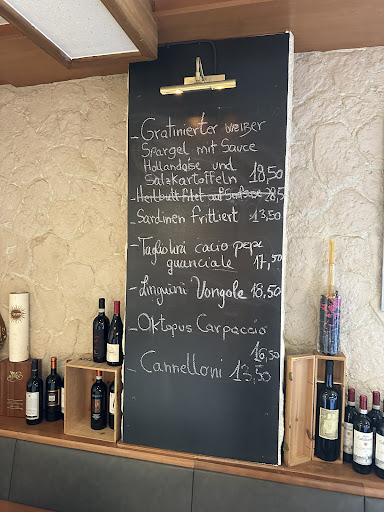 - Gratinierter weißer
Spargel mit Sauce
Hollandaise und
Salzkartoffeln 18,50
- Heilbutt filet auf 28,5
- Sardinen frittiert 13,50
- Tagliolini cacio pepe
guanciale 17,50
- Linguini Vongole 18,50
- Oktopus Carpaccio
16,50
- Cannelloni 13,50